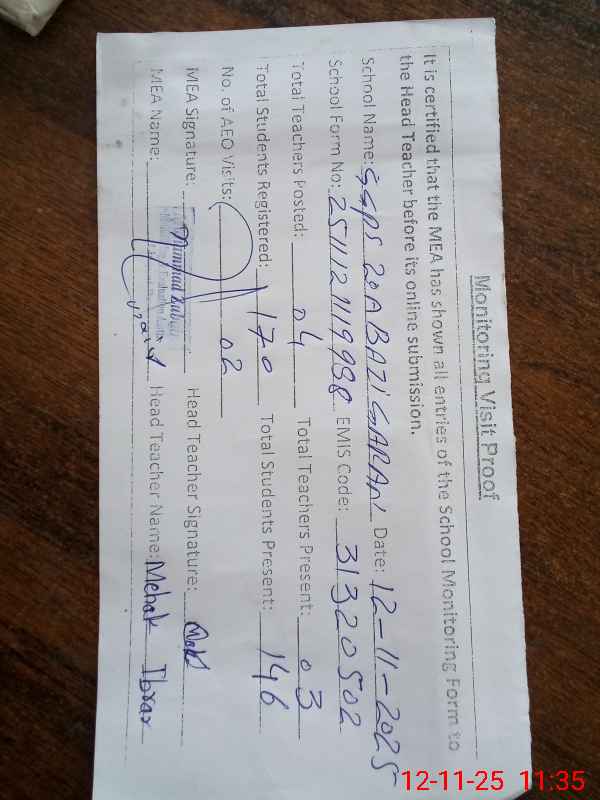 Monitoring Visit Proof
It is certified that the MEA has shown all entries of the School Monitoring Form to
the Head Teacher before its online submission.
School Name: GGPS 20 A BAZIGARAN Date: 12-11-2025
School Form No: EMIS Code: 31320502
Total Teachers Posted: 04 Total Teachers Present: 03
Total Students Registered: 170 Total Students Present: 146
No. of AEO Visits: 02
MEA Signature: Head Teacher Signature:
MEA Name: Head Teacher Name: Mehak Ibrar
12-11-25 11:35